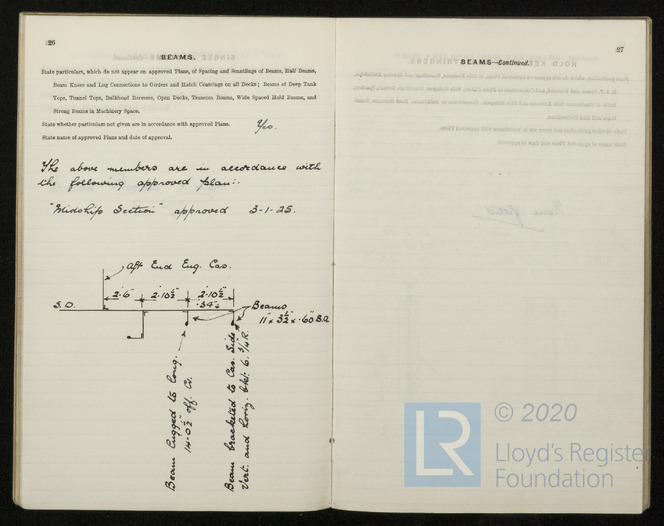 26
BEAMS.
State particulars, which do not appear on approved Plans, of Spacing and Scantlings of Beams, Half Beams,
Beam Knees and Lug Connections to Girders and Hatch Coamings on all Decks; Beams of Deep Tank
Tops, Tunnel Tops, Bulkhead Recesses, Open Decks, Transom Beams, Wide Spaced Hold Beams, and
Strong Beams in Machinery Space.
State whether particulars not given are in accordance with approved Plans.
State name of approved Plans and date of approval.
The above members are in accordance with
the following approved plan:-
"Midship Section" approved 3-1-25.
Aft End Eng. Cas.
2'-6" 2'-10½" 2'-10½"
.34"
S.D.
Beams
11" x 3½" x .60 B.A.
Beam lugged to long.
14'-0½" off. CL.
Beam bracketed to Cas. Side
Vert. and Horiz.
27
BEAMS—Continued.
LR
© 2020
Lloyd's Register
Foundation